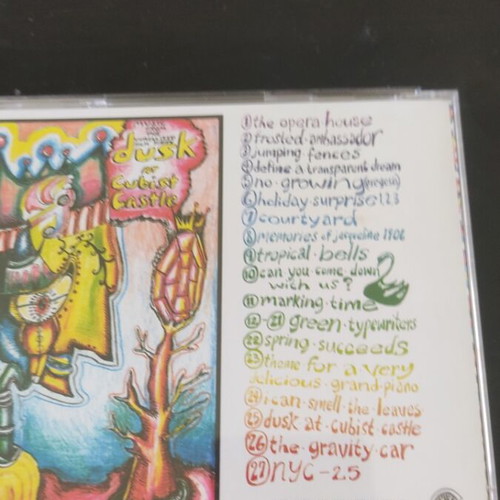 music
from the
unrealized
film
script
dusk
at
cubist
castle
① the opera house
② frosted ambassador
③ jumping fences
④ define a transparent dream
⑤ no growing (exegesis)
⑥ holiday surprise 1,2,3
⑦ courtyard
⑧ memories of jacqueline 1906
⑨ tropical bells
⑩ can you come down
with us?
⑪ marking time
⑫-㉑ green typewriters
㉒ spring succeeds
㉓ theme for a very
delicious grand piano
㉔ i can smell the leaves
㉕ dusk at cubist castle
㉖ the gravity car
㉗ NYC-25